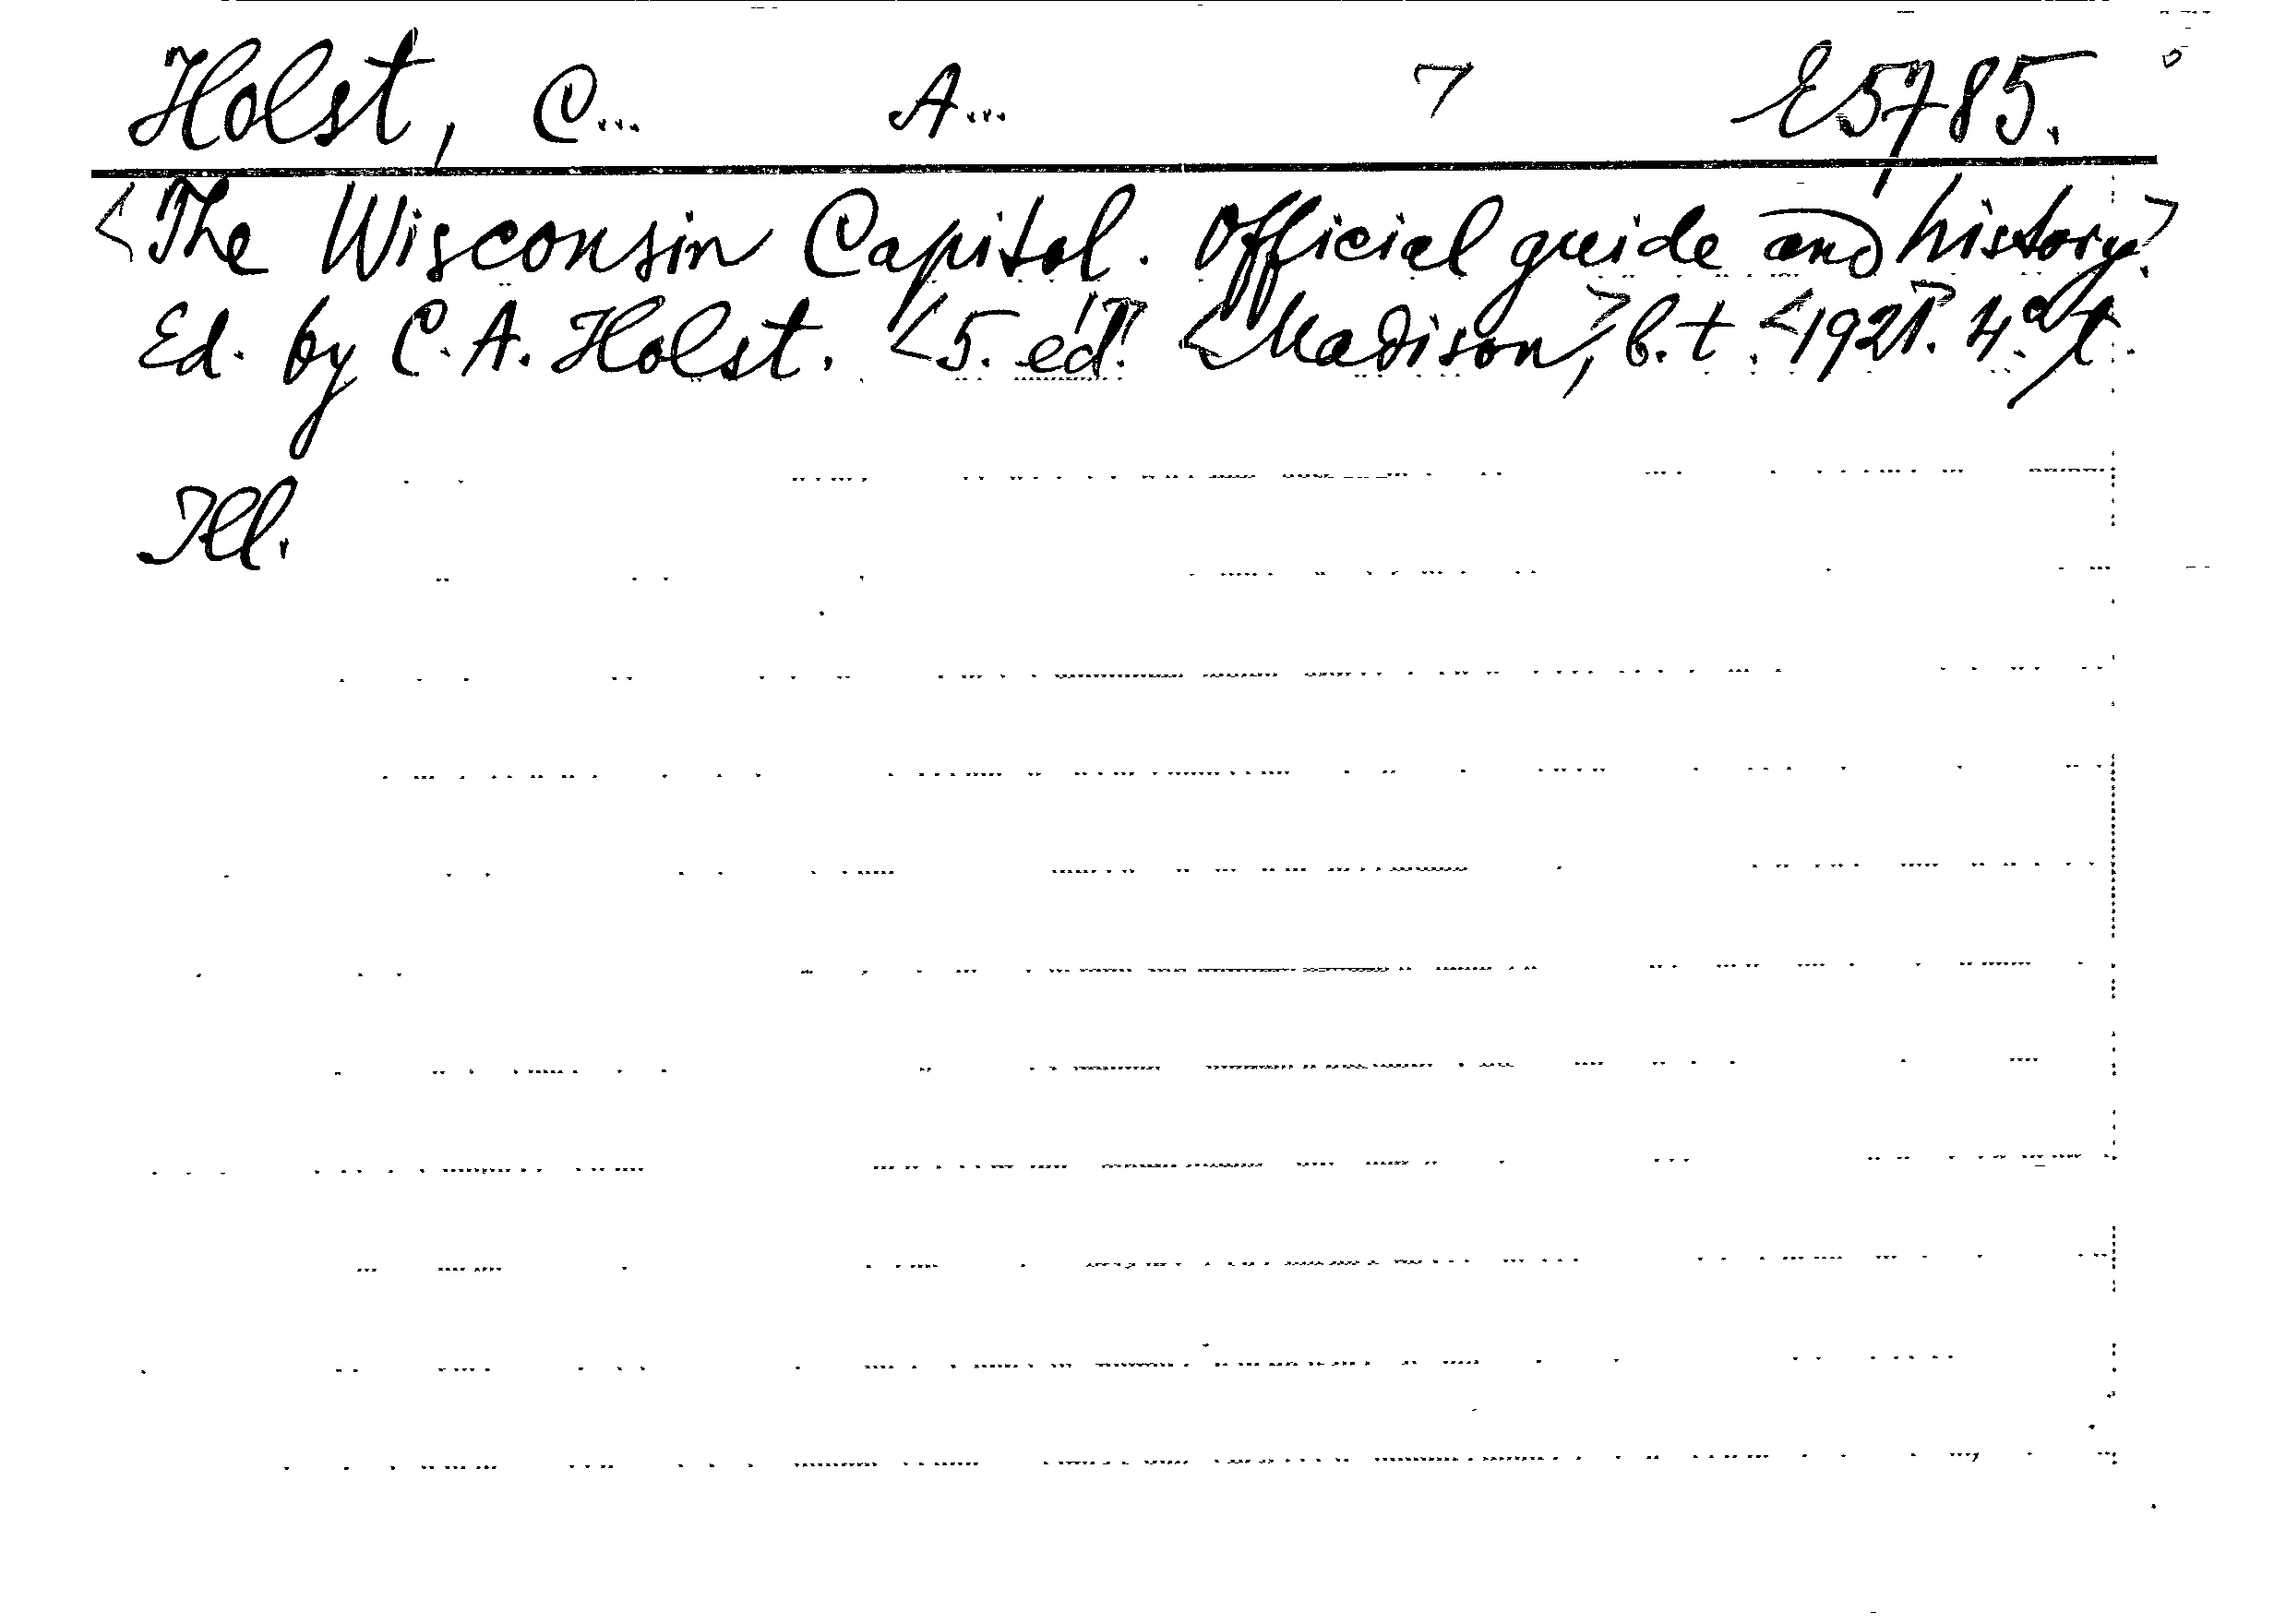 Holst, C... A... 7 E5785.
<The Wisconsin Capitol. Official guide and history>.
Ed. by C. A. Holst. <5. ed>. <Madison>, b. t. <1921>.
Ill.